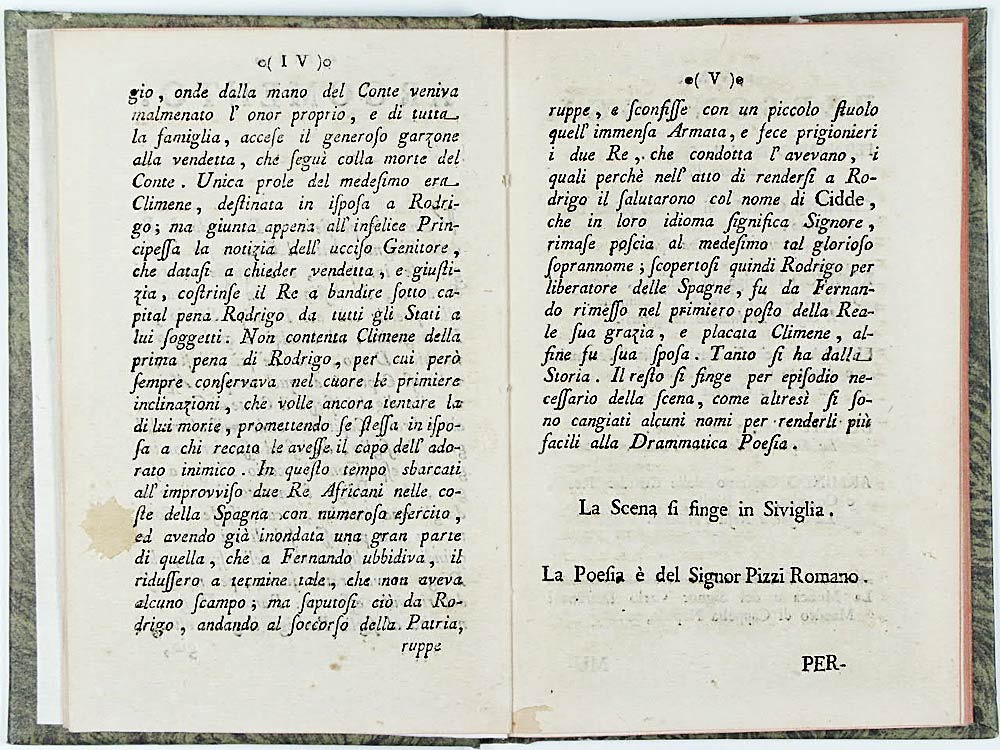 ( IV )
gio, onde dalla mano del Conte veniva
malmenato l' onor proprio, e di tutta
la famiglia, acceſe il generoſo garzone
alla vendetta, che ſeguì colla morte del
Conte. Unica prole del medeſimo era
Climene, deſtinata in iſpoſa a Rodri-
go; ma giunta appena all' infelice Prin-
cipeſſa la notizia dell' ucciſo Genitore,
che dataſi a chieder vendetta, e giuſti-
zia, coſtrinſe il Re a bandire ſotto ca-
pital pena Rodrigo da tutti gli Stati a
lui ſoggetti. Non contenta Climene della
prima pena di Rodrigo, per cui però
ſempre conſervava nel cuore le primiere
inclinazioni, che volle ancora tentare la
di lui morte, promettendo ſe ſteſſa in iſpo-
ſa a chi recato le aveſſe il capo dell' ado-
rato inimico. In queſto tempo sbarcati
all' improvviſo due Re Africani nelle co-
ſte della Spagna con numeroſa eſercito,
ed avendo già inondata una gran parte
di quella, che a Fernando ubbidiva, il
riduſſero a termine tale, che non aveva
alcuno ſcampo; ma ſaputoſi ciò da Ro-
drigo, andando al ſoccorſo della Patria,
ruppe
( V )
ruppe, e ſconfiſſe con un piccolo ſtuolo
quell' immenſa Armata, e fece prigionieri
i due Re, che condotta l' avevano, i
quali perchè nell' atto di renderſi a Ro-
drigo il ſalutarono col nome di Cidde,
che in loro idioma ſignifica Signore,
rimaſe poſcia al medeſimo tal glorioſo
ſoprannome; ſcopertoſi quindi Rodrigo per
liberatore delle Spagne, fu da Fernan-
do rimeſſo nel primiero poſto della Rea-
le ſua grazia, e placata Climene, al-
fine fu ſua ſpoſa. Tanto ſi ha dalla
Storia. Il reſto ſi finge per epiſodio ne-
ceſſario della ſcena, come altresì ſi ſo-
no cangiati alcuni nomi per renderli più
facili alla Drammatica Poeſia.
La Scena ſi finge in Siviglia.
La Poeſia è del Signor Pizzi Romano.
PER-